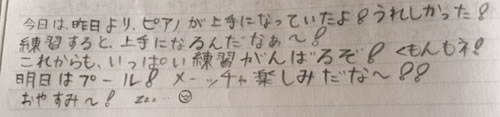 今日は、昨日より、ピアノが上手になっていたよ!うれしかった!
練習すると、上手になるんだなぁ～!
これからも、いっぱい練習がんばるぞ!くもんもネ!
明日はプール!メーッチャ楽しみだな～!!
おやすみ～! zzz…